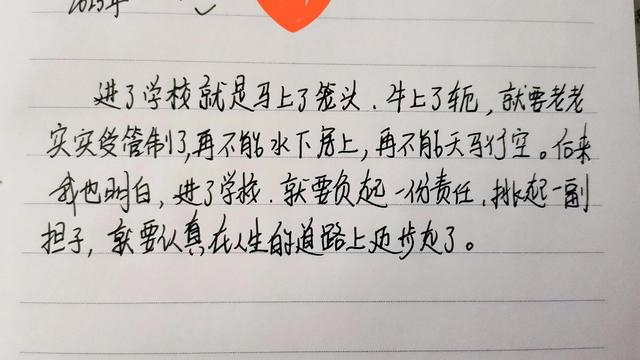 进了学校就是马上了笼头、牛上了轭，就要老老
实实受管制了，再不能水下房上，再不能天马行空。后来
我也明白，进了学校、就要负起一份责任、挑起一副
担子，就要认真在人生的道路上迈步走了。